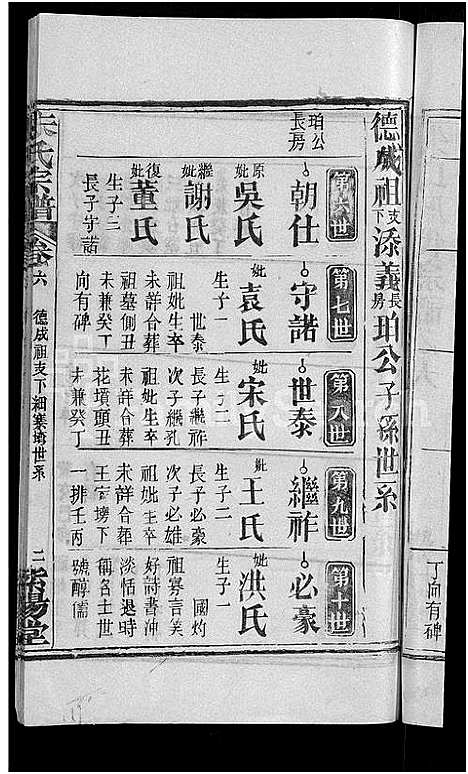 丁向有碑
德成祖支下添義長房珀公子孫世系
珀公長房
第六世
朝仕
原妣吳氏
繼妣謝氏
復妣董氏
生子二
長子守諾
第七世
守諾
妣袁氏
生子一
世泰
祖妣生卒
未詳合葬
祖墓側丑
未兼癸丁
向有碑
第八世
世泰
妣宋氏
生子二
長子繼祚
次子繼孔
祖妣生卒
未詳合葬
花墳頭丑
未兼癸丁
第九世
繼祚
妣王氏
生子二
長子必豪
次子必雄
祖妣生卒
未詳合葬
王家塝下
一排壬丙
第十世
必豪
妣洪氏
生子一
國灼
祖寡言笑
好詩書沖
淡恬退時
稱名士世
號醇儒
朱氏宗譜
卷六
德成祖支下細寨塆世系
二
紫陽堂